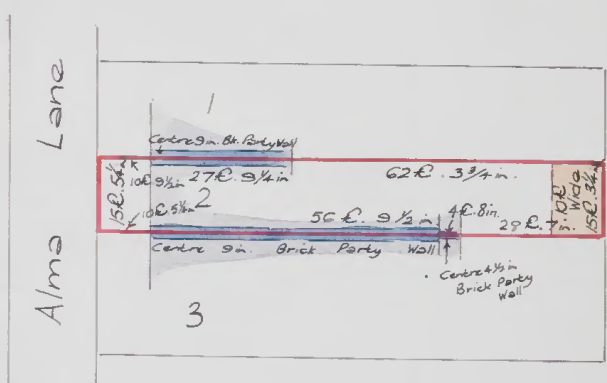 Alma Lane
1
Centre 9 in. Bk. Party Wall
10ft. 9½in
27ft. 9¼in
62ft. 3¾in
15ft. 5¼in
2
10ft. 5¼in
56ft. 9½in
4ft. 8in.
28ft. 7
3.10ft Wide
15ft. 3¼in
Centre 9in. Brick Party Wall
Centre 4½in
Brick Party
Wall
3